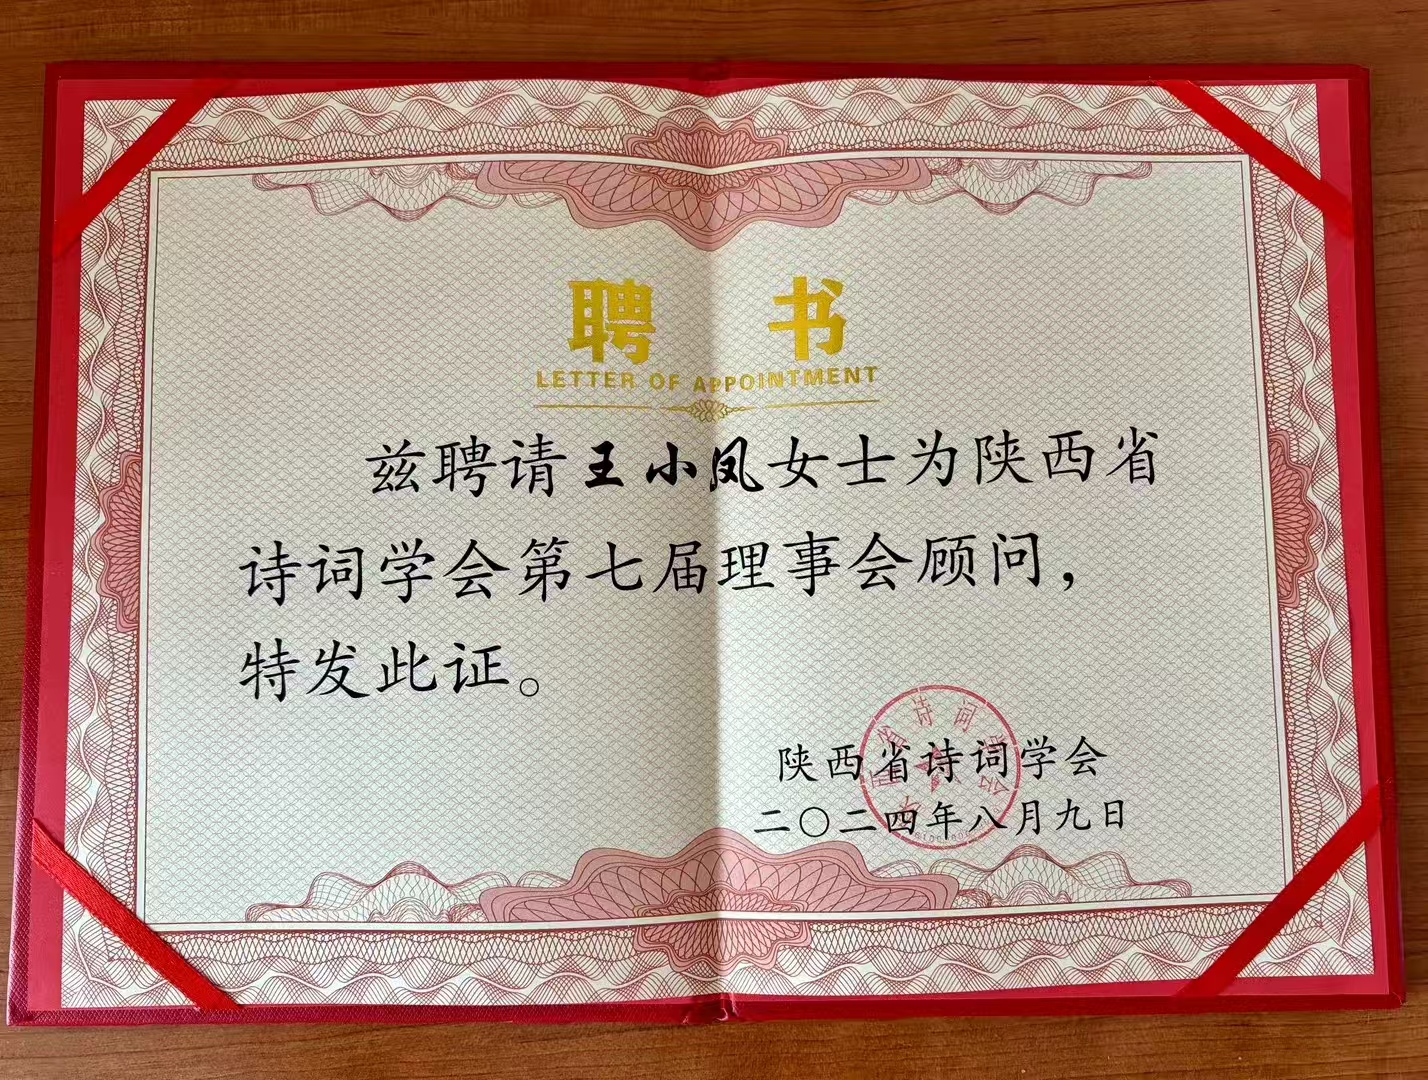 聘 书
LETTER OF APPOINTMENT
兹聘请王小凤女士为陕西省
诗词学会第七届理事会顾问，
特发此证。
陕西省诗词学会
二〇二四年八月九日